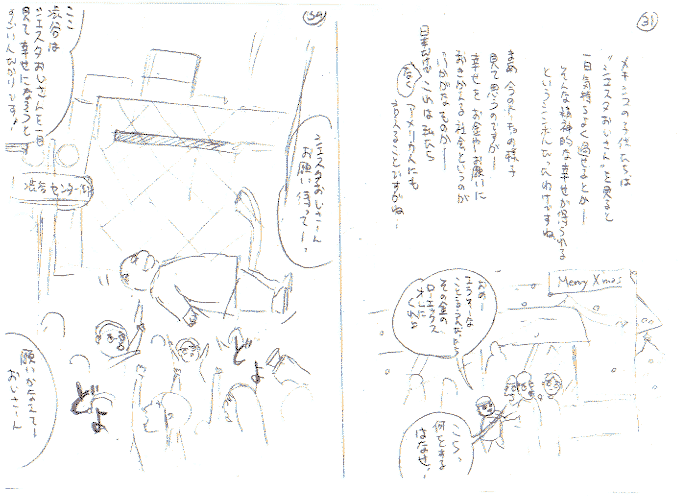 31
メキシコの子供たちは
"シエスタおじさん"を見ると
一日気持ちよく過せるとか――
そんな精神的な幸せが得られる
ということなんだったわけですね
まあ 今の
見て思うのですが――
幸せを お金や お願いに
社会というのが
いかがなものか――
日本だけでなく これは 私たち
アメリカ人にも
言えることですがね…
Merry Xmas
あのー
その金の
ローレックス
オレに
くれよ
こらっ
何をする
はなせ!
30
シエスタおじさーん
お願い 待ってーっ
ここ
渋谷は
シエスタおじさんを一目
見て幸せになろうと
すごい人だかりです!
渋谷センター街
どよ
どよ
願いかなえてー
おじさーん